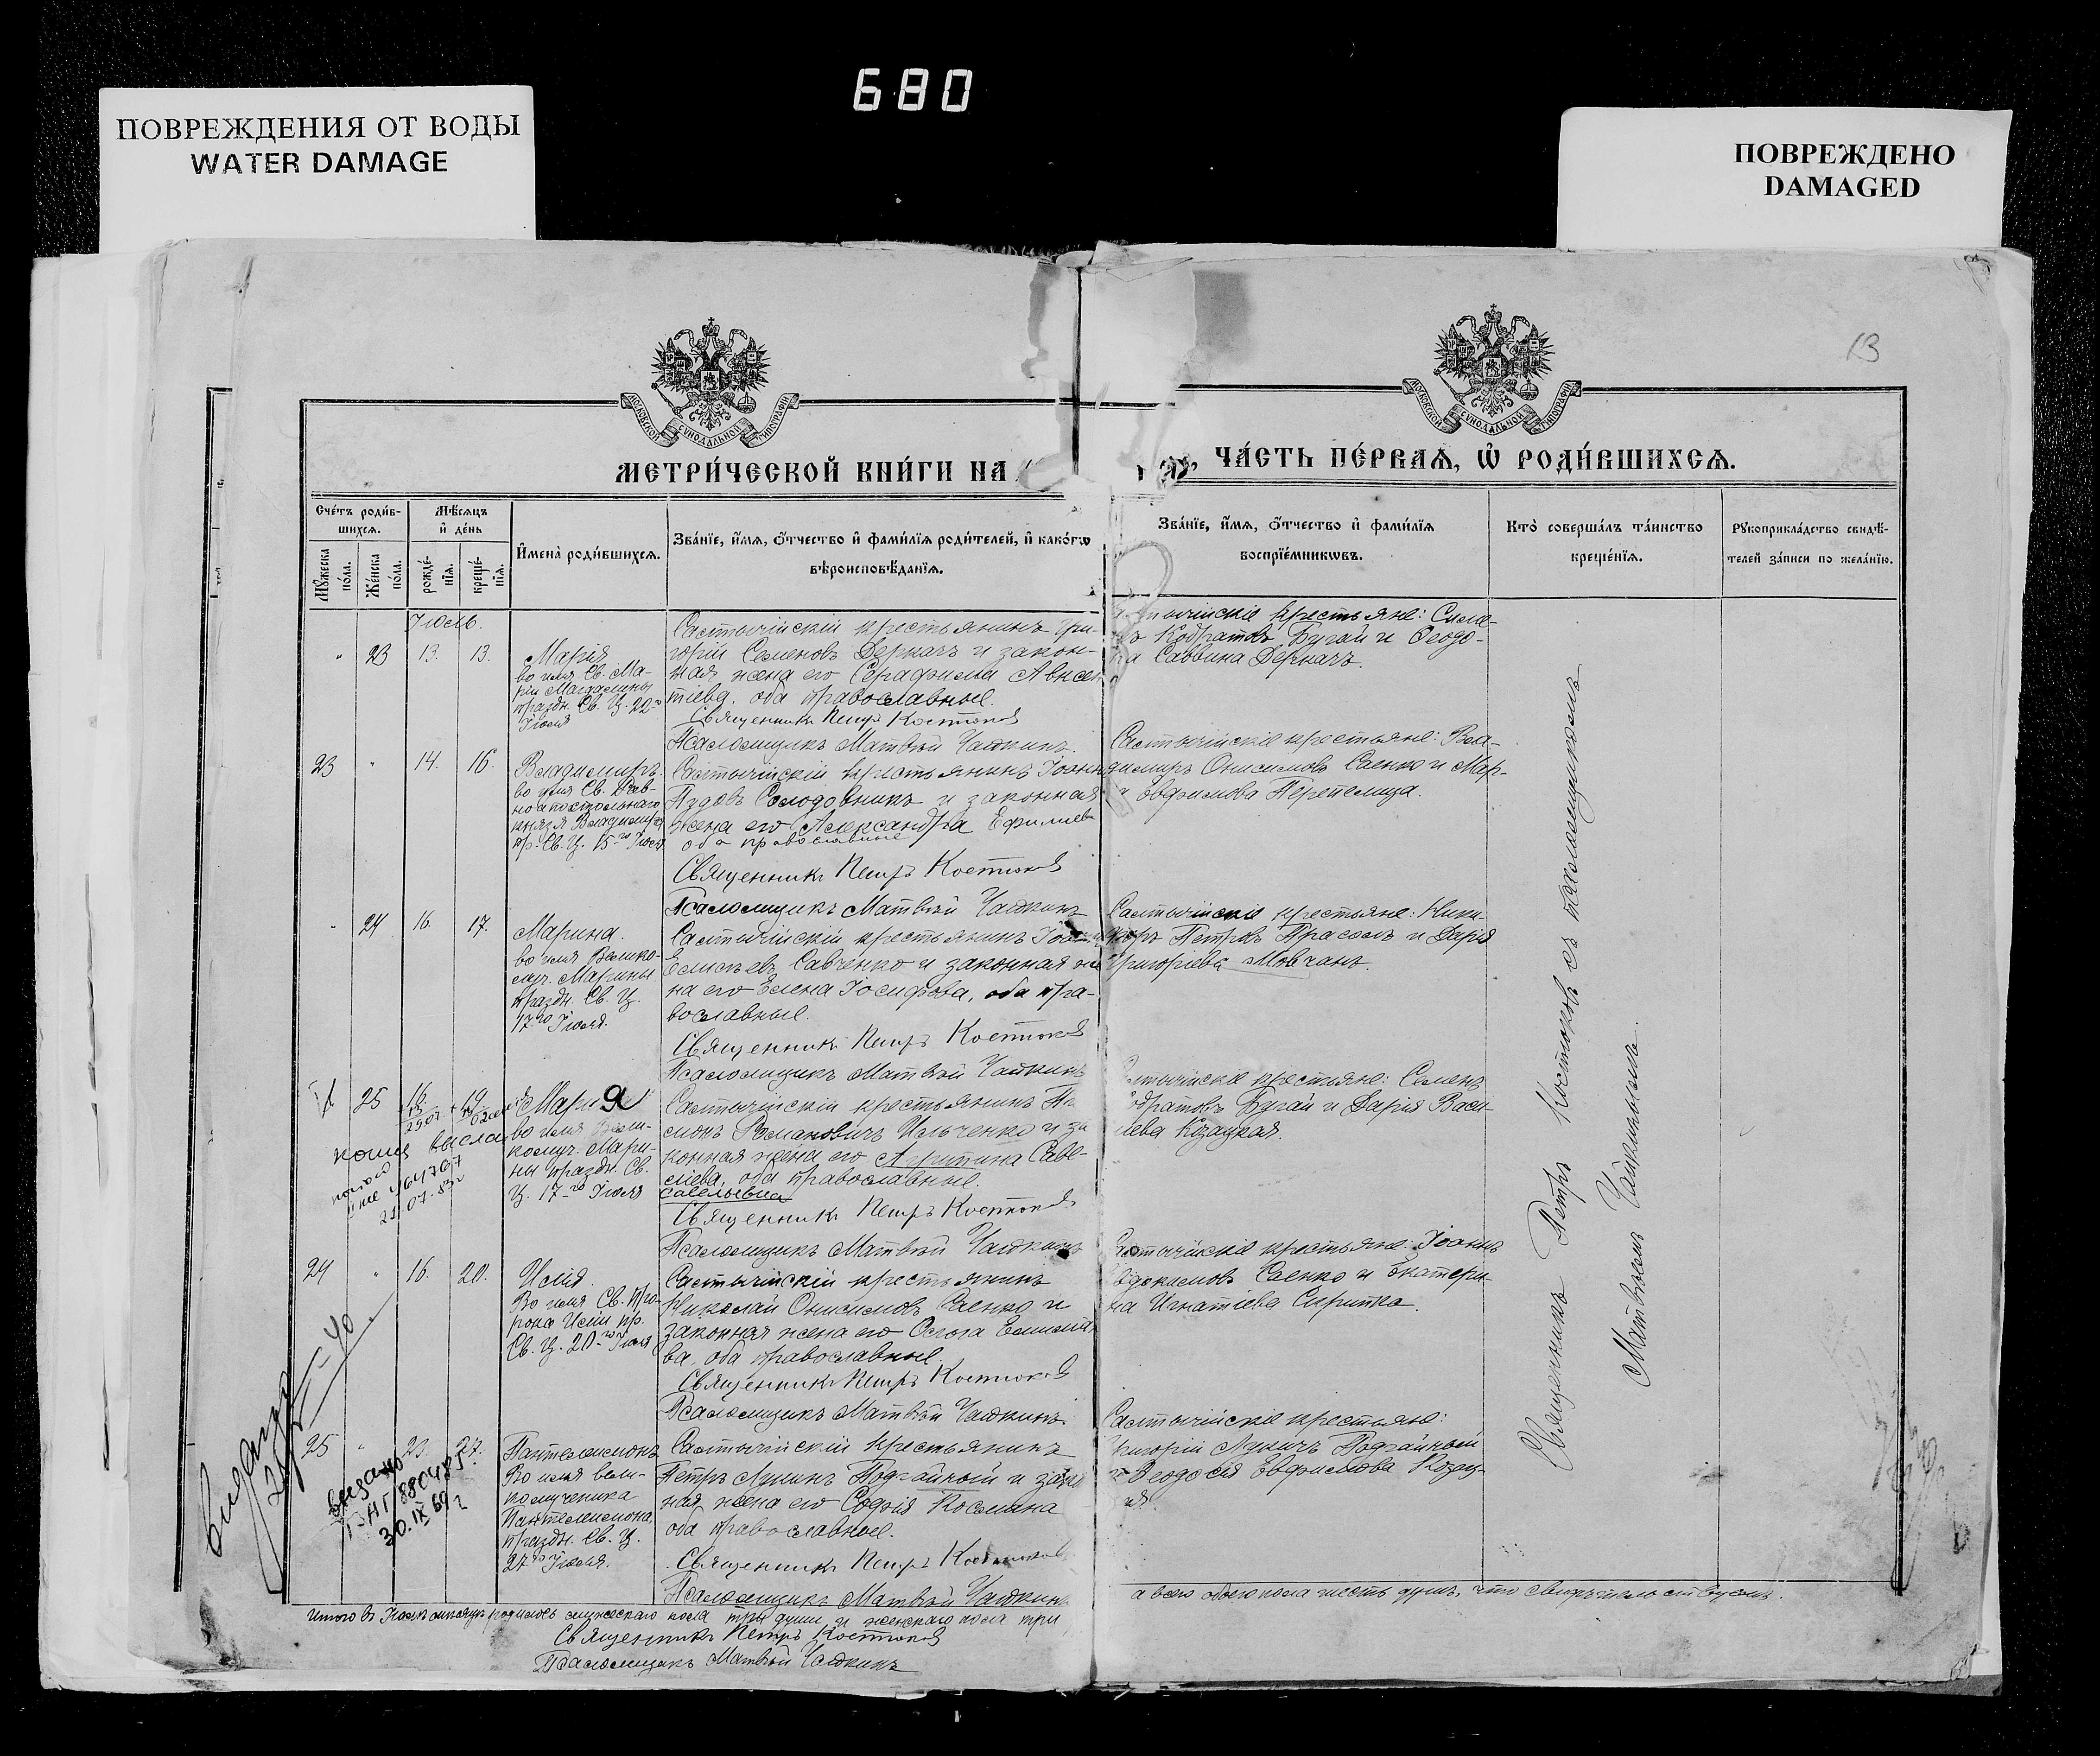 680
ПОВРЕЖДЕНИЯ ОТ ВОДЫ
WATER DAMAGE
ПОВРЕЖДЕНО
DAMAGED
13
МОСКОВСКОЙ СУНОДАЛЬНОЙ ТИПОГРАФІИ
МОСКОВСКОЙ СУНОДАЛЬНОЙ ТИПОГРАФІИ
МЕТРИ́ЧЕСКОЙ КНИ́ГИ НА
ЧА́СТЬ ПЕ́РВАѦ, Ѽ РОДИ́ВШИХСѦ.
Сче́тъ роди́в-
шихсѧ.
Мѣ́сѧцъ
и҆ де́нь
Мꙋ́жеска
по́ла.
Же́нска
по́ла.
рожде́-
нїѧ.
креще́-
нїѧ.
И҆мена̀ роди́вшихсѧ.
Зва́нїе, и҆́мѧ, ѻ҆́тчество и҆ фами́лїѧ роди́телей, и҆ како́гѡ
вѣроисповѣ́данїѧ.
Зва́нїе, и҆́мѧ, ѻ҆́тчество и҆ фами́лїѧ
воспрїе́мникѡвъ.
Кто̀ соверша́лъ та́инство
креще́нїѧ.
Рꙋкоприкла́дство свидѣ́-
телей за́писи по жела́нїю.
Іюль.
" 23 13. 13.
Марія
во имя Св. Ма-
ріи Магдалины
праздн. Св. Ц. 22-го
Іюля
Салтычійскій крестьянинъ Гри-
горій Семеновъ Деркачъ и закон-
ная жена его Серафима Авксен
тіева, оба православные.
Священникъ Петръ Костюковъ
Псаломщикъ Матвѣй Чайкинъ.
крестьяне: Симе-
Кодратовъ Бугай и Ѳеодо-
Саввина Деркачъ.
23 " 14. 16.
Владимиръ.
во имя Св. Рав-
ноапостольнаго
князя Владимира
пр. Св. Ц. 15-го Іюля
Салтычійскій крестьянинъ Іоанн
Солодовникъ и законная
жена его Александра Ефимиева
оба православные
Священникъ Петръ Костюковъ
Псаломщикъ Матвѣй Чайкинъ
Салтычійскіе крестьяне: Вла-
димиръ Онисимовъ Саенко и Мар-
Евфимова Перепелица.
" 24 16. 17.
Марина.
во имя Велико-
муч. Марины
праздн. Св. Ц.
17-го Іюля.
Салтычійскій крестьянинъ
Елисѣевъ Савченко и законная же
на его Елена Іосифова, оба пра-
вославные.
Священникъ Петръ Костюковъ
Псаломщикъ Матвѣй Чайкинъ
Салтычійскіе крестьяне: Ники-
форъ Петровъ Прасолъ и Дарія
Григорьева Мовчанъ.
25 16. 19.
Мария
во имя Вели-
комуч. Мари-
ны праздн. Св.
Ц. 17-го Іюля
Салтычійскій крестьянинъ
Романовичъ Ильченко и за
конная жена его Саве-
ліева, оба православные.
Савельевна
Священникъ Петръ Костюковъ
Псаломщикъ Матвѣй Чайкинъ
крестьяне: Семенъ
Кодратовъ Бугай и Дарія Васи-
лева Козацкая.
24 " 16. 20.
Илія.
Во имя Св. Про-
рока Иліи пр.
Св. Ц. 20-го Іюля
Салтычійскій крестьянинъ
Николай Онисимовъ Саенко и
законная жена его Ольга
ва, оба православные.
Священникъ Петръ Костюковъ
Псаломщикъ Матвѣй Чайкинъ
Салтычійскіе крестьяне: Іоаннъ
Евдокимовъ Саенко и Екатери-
на Игнатіева Скрипка.
25 " 27.
Пантелеимонъ
Во имя вели-
комученика
Пантелеимона
праздн. Св. Ц.
27-го Іюля.
Салтычійскій крестьянинъ
Петръ Лукинъ Подгайный и
ная жена его Софія Космина
оба православные.
Священникъ Петръ Костюковъ
Псаломщикъ Матвѣй Чайкинъ
Салтычійскіе крестьяне:
Григорій Лукичъ Подгайный
и Ѳеодосія Евфимова
Священникъ Петръ Костюковъ съ псаломщикомъ
Матвѣемъ Чайкинымъ.
выдано
30.IX 69 г
Итого въ Іюлѣ мѣсяцѣ родилось мужескаго пола три души и женскаго пола три
а всего обоего пола шесть душъ, что свидѣтельствуемъ.
Священникъ Петръ Костюковъ
Псаломщикъ Матвѣй Чайкинъ